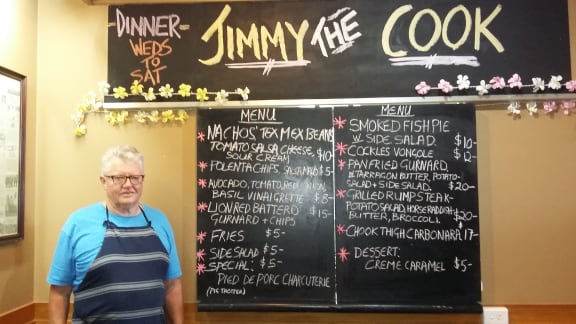 DINNER
WEDS
TO
SAT
JIMMY THE COOK
MENU
NACHOS' TEX MEX BEANS
TOMATO SALSA CHEESE,
SOUR CREAM $10-
POLENTA CHIPS, $5-
AVOCADO, TOMATO, RED ONION,
BASIL VINAIGRETTE $8-
LION RED BATTERD $15-
GURNARD + CHIPS
FRIES $5-
SIDE SALAD $5-
SPECIAL: $5-
PIED DE PORC CHARCUTERIE
(PIG TROTTER)
MENU
SMOKED FISH PIE
W. SIDE SALAD. $10-
COCKLES VONGOLE $12-
PAN FRIED GURNARD,
TARRAGON BUTTER, POTATO
SALAD + SIDE SALAD. $20-
GRILLED RUMPSTEAK-
POTATO SALAD, HORSERADDISH
BUTTER, BROCCOLI. $20-
CHOOK THIGH CARBONARA 17-
DESSERT:
CREME CARAMEL $5-